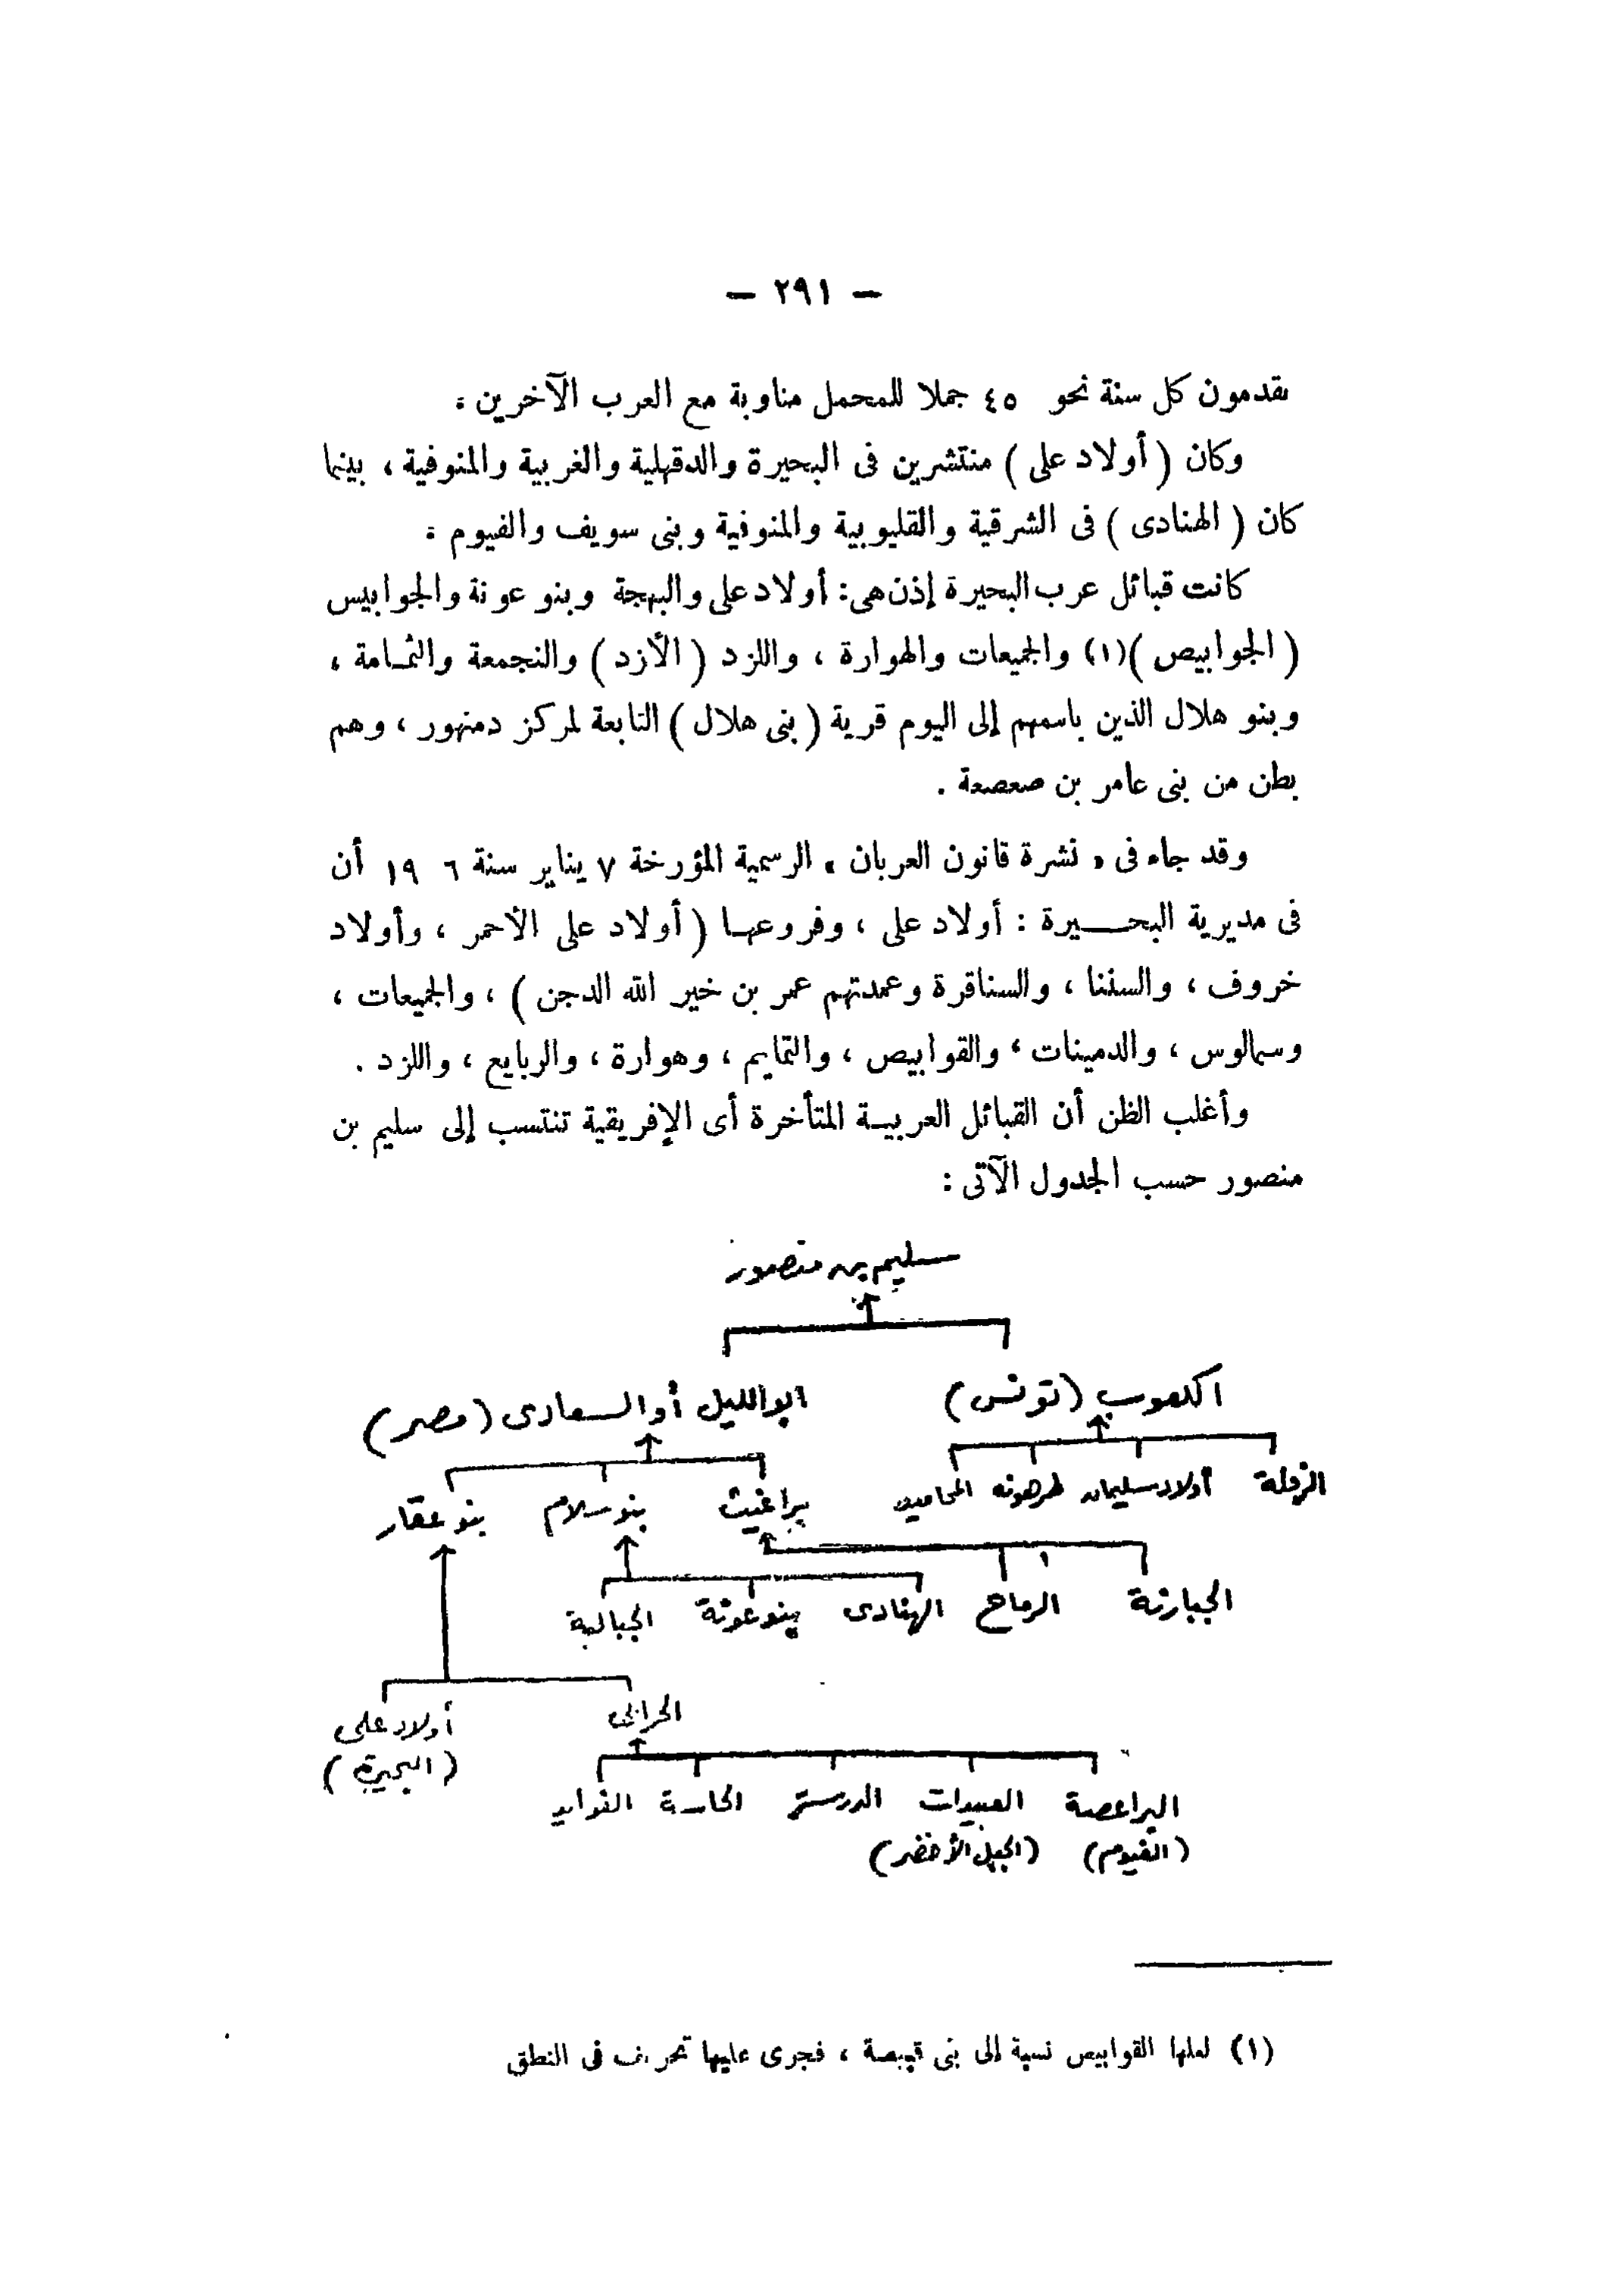 — ٢٩١ —
يقدمون كل سنة نحو ٤٥ جملا للمحمل مناوبة مع العرب الآخرين .
وكان ( أولاد على ) منتشرين فى البحيرة والدقهلية والغربية والمنوفية ، بينما
كان ( الهنادى ) فى الشرقية والقليوبية والمنوفية وبنى سويف والفيوم .
كانت قبائل عرب البحيرة إذن هى : أولاد على والبهجة وبنو عونة والجوابيس
( الجوابيص )(١) والجميعات والهوارة ، واللزد ( الأزد ) والنجمعة والثمامة ،
وبنو هلال الذين باسمهم إلى اليوم قرية ( بنى هلال ) التابعة لمركز دمنهور ، وهم
بطن من بنى عامر بن صعصعة .
وقد جاء فى « نشرة قانون العربان » الرسمية المؤرخة ٧ يناير سنة ١٩ ٦ أن
فى مديرية البحـــيرة : أولاد على ، وفروعها ( أولاد على الأحمر ، وأولاد
خروف ، والسننا ، والسناقرة وعمدتهم عمر بن خير الله الدجن ) ، والجميعات ،
وسمالوس ، والدمينات ، والقوابيص ، والتمايم ، وهوارة ، والربايع ، واللزد .
وأغلب الظن أن القبائل العربيـة المتأخرة أى الإفريقية تنتسب إلى سليم بن
منصور حسب الجدول الآتى :
سليم بن منصور
الكعوب (تونس) ابو الليل أو السعادى (مصر)
الزولة أولاد سليمان طرهونه المحاميد براغيث بنو سلام بنو عقار
الجبارنة الرماح الهنادى بنو عونة الجبالية
الحرابى أولاد على
(البحيرة)
البراعصة العبيدات الدرسة الحاسة الفوايد
(الفيوم) (الجبل الأخضر)
(١) لعلها القوابيص نسبة إلى بنى قبيصة ، فجرى عليها تحريف فى النطق